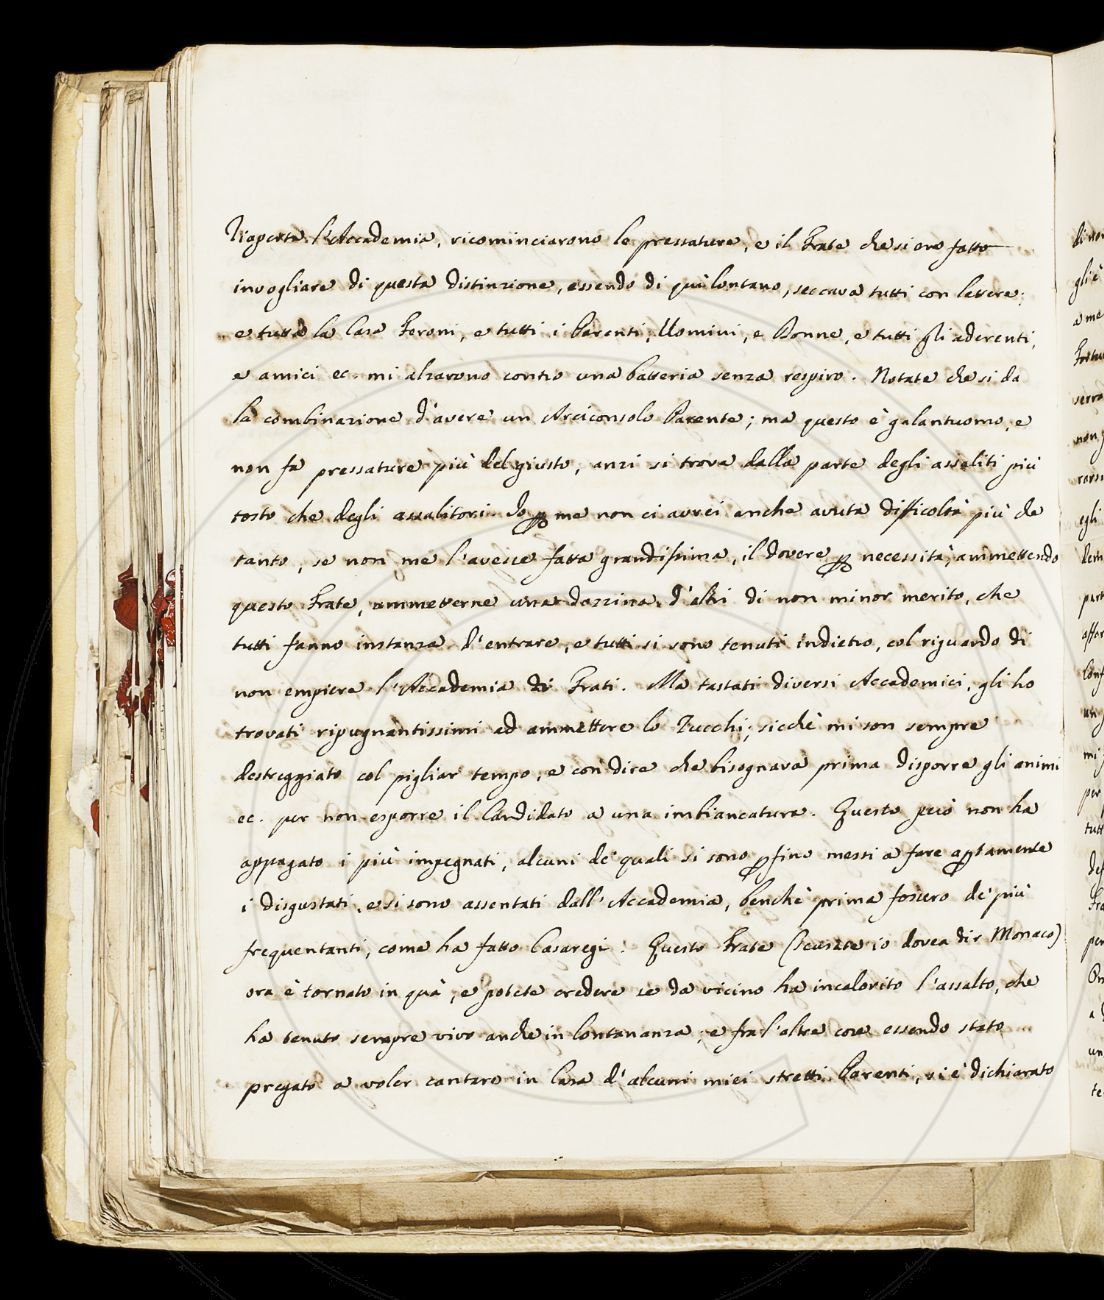 Riaperta l'Accademia, ricominciarono le pressature, e il Frate che si era fatto
invogliare di questa distinzione, essendo di più lontano, seccava tutti con lettere:
e tutta la Casa Feroni, e tutti i Parenti, Uomini, e Donne, e tutti gli aderenti,
e amici ec. mi alzarono contro una batteria senza respiro. Notate che si da
la combinazione d'avere un Arciconsolo Parente; ma questo è galantuomo, e
non fa pressature più del giusto, anzi si trova dalla parte degli assaliti più
tosto che degli assalitori. Io ꝑ me non ci avrei anche avuta difficoltà più che
tanto, se non me l'avesse fatta grandissima, il dovere ꝑ necessità, ammettendo
questo Frate, ammetterne una dozzina d'altri di non minor merito, che
tutti fanno instanza d'entrare, e tutti si sono tenuti indietro, col riguardo di
non empiere l'Accademia di Frati. Ma tastati diversi Accademici, gli ho
trovati ripugnantissimi ad ammettere lo Zucchi, sicchè mi son sempre
destreggiato col pigliar tempo, e con dire che bisognava prima disporre gli animi
ec. per non esporre il Candidato a una imbiancatura. Questo però non ha
appagato i più impegnati, alcuni de' quali si sono ꝑfino messi a fare aꝑtamente
i disgustati, e si sono assentati dall'Accademia, benchè prima fossero de' più
frequentanti, come ha fatto Casaregi. Questo Frate (scusate io dovea dir Monaco)
ora è tornato in quà, e potete credere se da vicino ha incalorito l'assalto, che
ha tenuto sempre vivo anche in lontananza; e fra l'altre cose essendo stato
pregato a voler cantare in Casa d'alcuni miei stretti Parenti, si è dichiarato